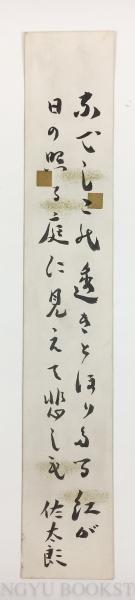 なでしこの透きとほりたる紅が
日の照る庭に見えて悲しも 佐太郎
NGYU BOOKST